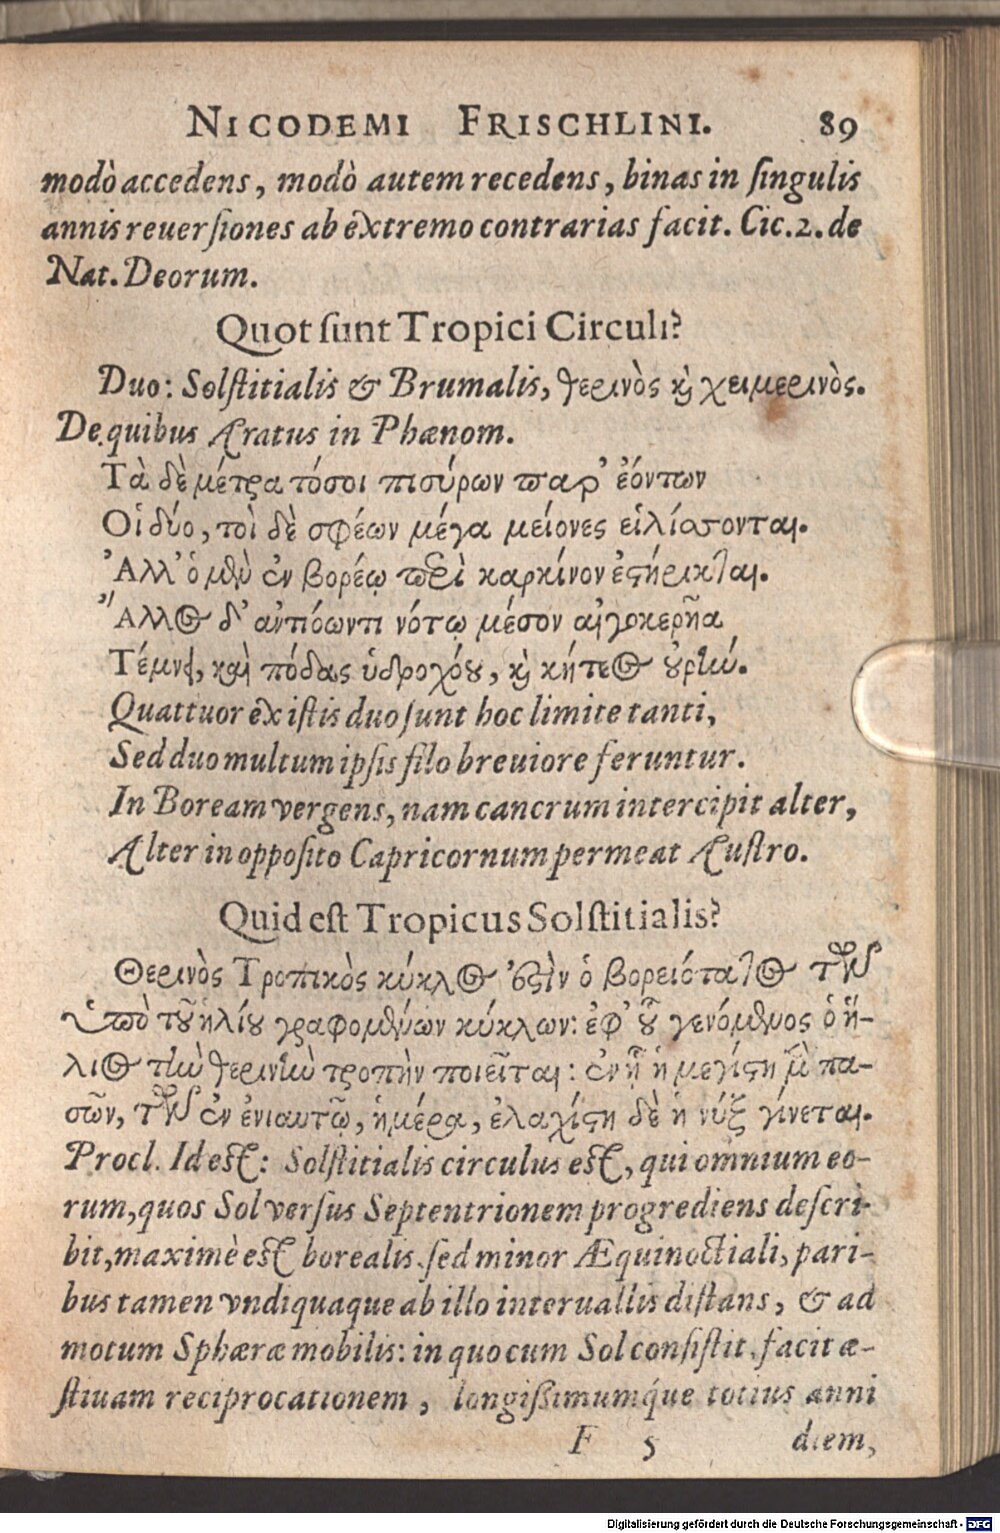 NICODEMI FRISCHLINI. 89
modò accedens, modò autem recedens, binas in ſingulis
annis reuerſiones ab extremo contrarias facit. Cic. 2. de
Nat. Deorum.
Quot ſunt Tropici Circuli?
Duo: Solſtitialis & Brumalis, θερινὸς ϗ̀ χειμερινὸς.
De quibus Aratus in Phænom.
Τὰ δὲ μέτρα τόσοι πισύρων παρ’ ἐόντων
Οἱ δύο, τοὶ δὲ σφέων μέγα μείονες εἱλίσσονται.
Ἀλλ’ ὁ μὲν ἐν βορέῳ περὶ καρκίνον ἐϛήρικται.
Ἄλλος δ’ ἀντιόωντι νότῳ μέσον αἰγοκερῆα
Τέμνει, καὶ πόδας ὑδροχόου, ϗ̀ κήτεος οὐρήν.
Quattuor ex iſtis duo ſunt hoc limite tanti,
Sed duo multum ipſis filo breuiore feruntur.
In Boream vergens, nam cancrum intercipit alter,
Alter in oppoſito Capricornum permeat Auſtro.
Quid eſt Tropicus Solſtitialis?
Θερινὸς Τροπικὸς κύκλος ἐϛὶν ὁ βορειότατος τῶν
ὑπὸ τοῦ ἡλίου γραφομένων κύκλων: ἐφ’ οὗ γενόμενος ὁ ἥ-
λιος τὴν θερινὴν τροπὴν ποιεῖται: ἐν ᾗ ἡ μεγίϛη μὲν πα-
σῶν, τῶν ἐν ἐνιαυτῷ, ἡμέρα, ἐλαχίϛη δὲ ἡ νὺξ γίνεται.
Procl. Id eſt: Solſtitialis circulus eſt, qui omnium eo-
rum, quos Sol verſus Septentrionem progrediens deſcri-
bit, maximè eſt borealis. ſed minor Æquinoctiali, pari-
bus tamen vndiquaque ab illo interuallis diſtans, & ad
motum Sphæræ mobilis: in quo cum Sol conſiſtit, facit æ-
ſtiuam reciprocationem, longiſſimumq́ue totius anni
F 5 diem,
Digitalisierung gefördert durch die Deutsche Forschungsgemeinschaft - DFG